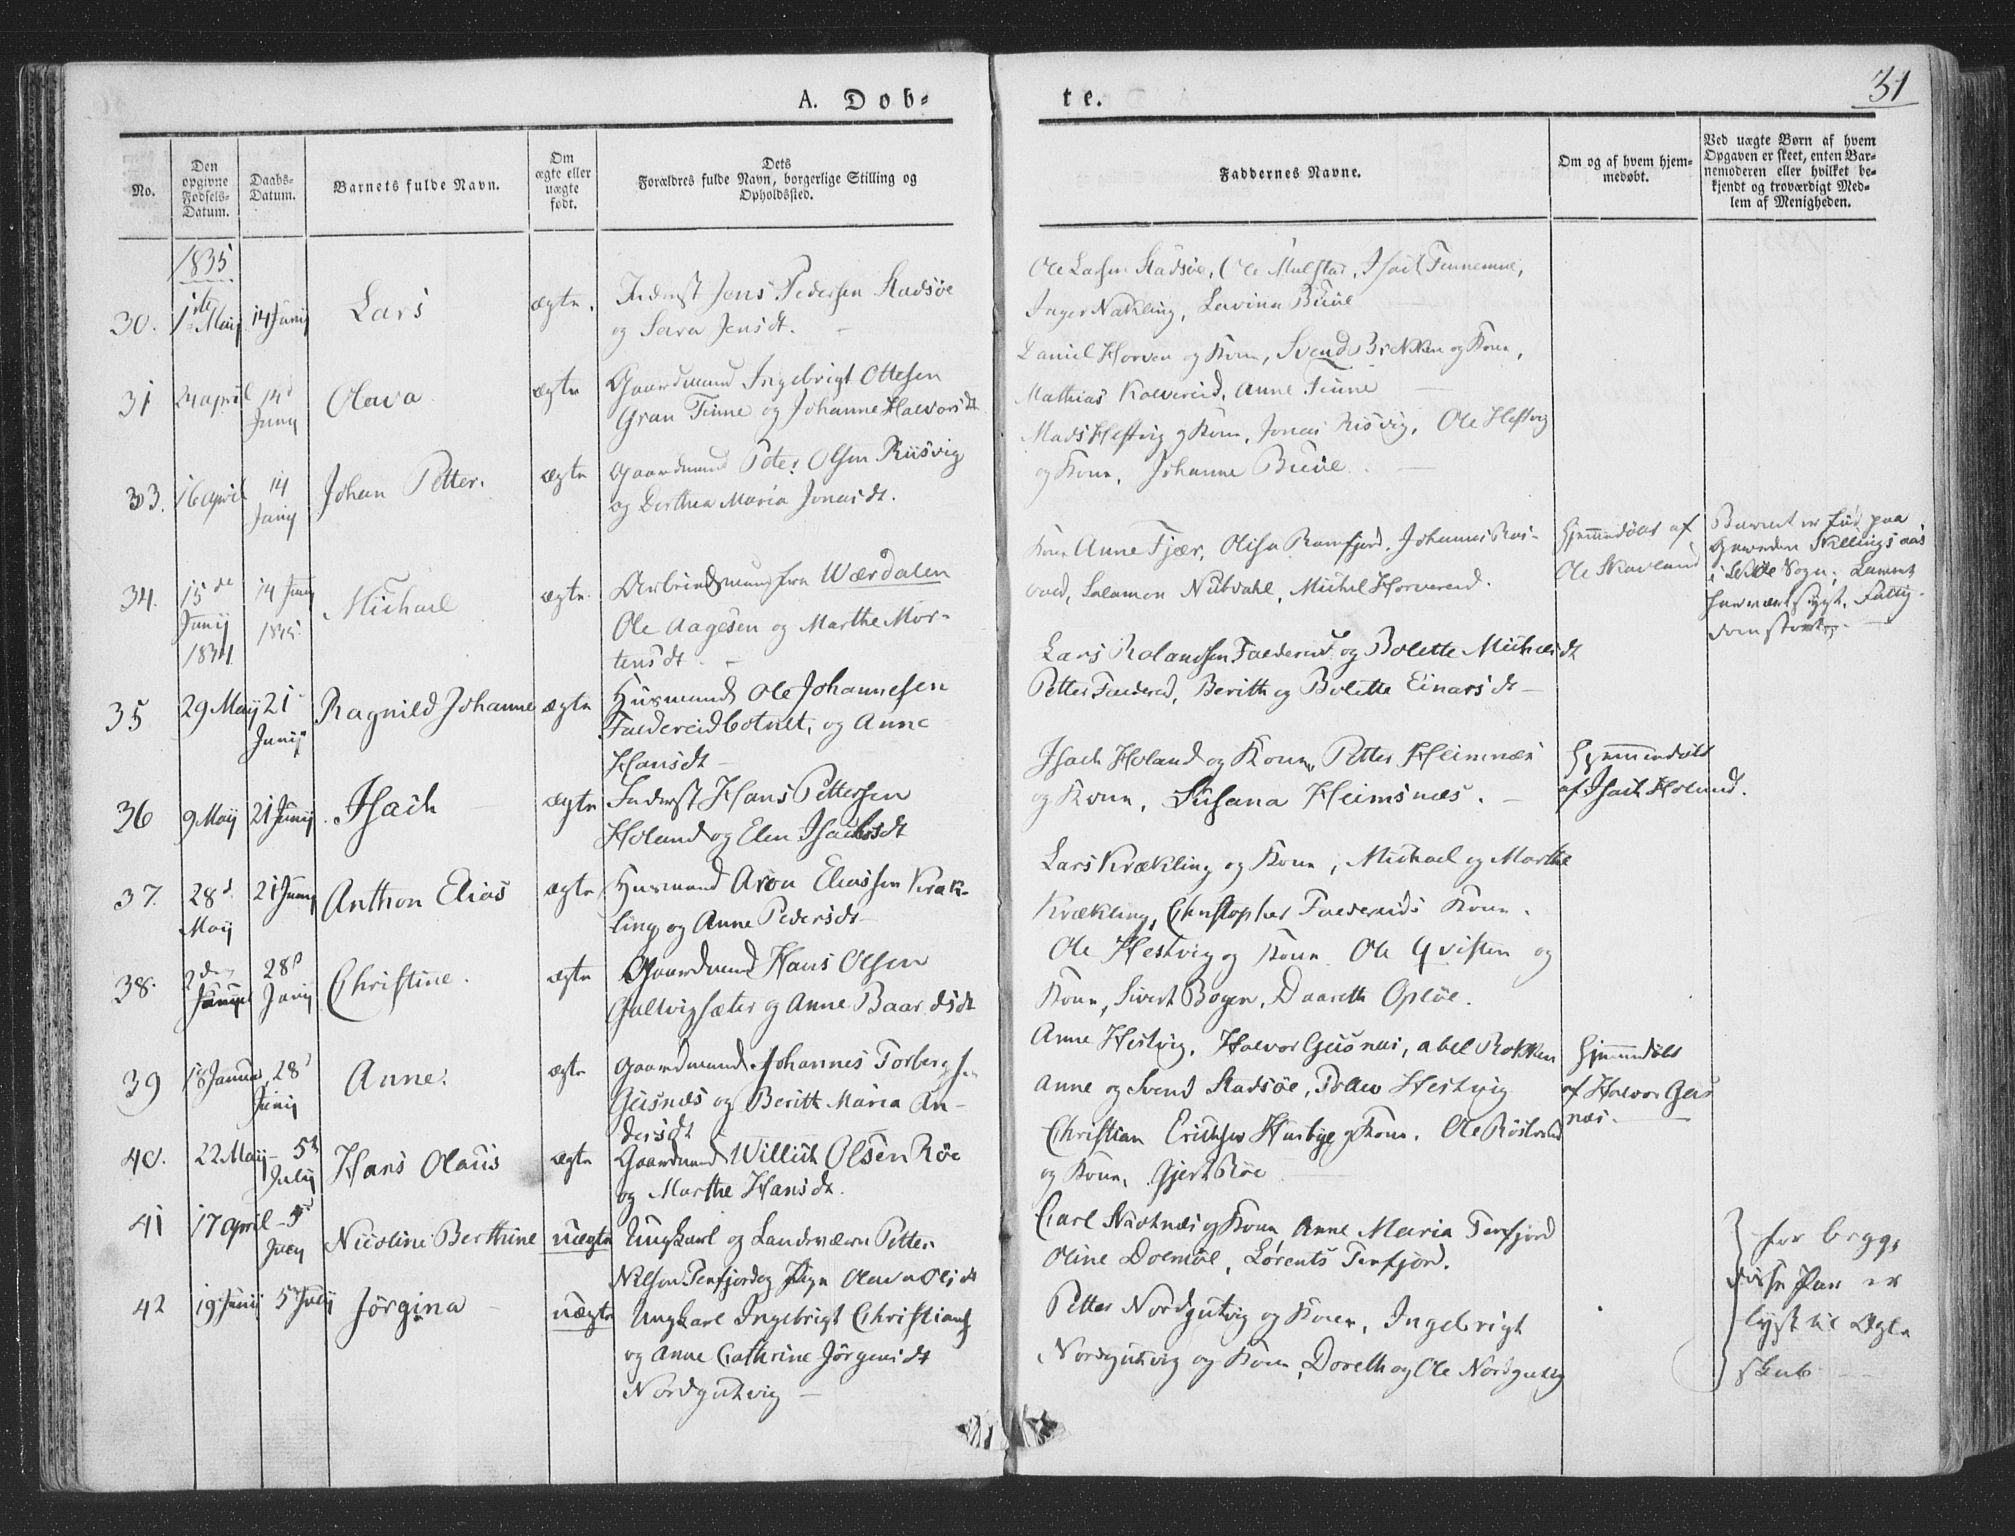 A. Dob-
te.
31
No.
Den opgivne Fødsels-Datum.
Daabs-Datum.
Barnets fulde Navn.
Om ægte eller uægte født.
Dets Forældres fulde Navn, borgerlige Stilling og Opholdssted.
Faddernes Navne.
Om og af hvem hjem-medøbt.
Ved uægte Børn af hvem Opgaven er skeet, enten Bar-nemoderen eller hvilket be-kjendt og troværdigt Med-lem af Menigheden.
1835
30. 1ste Maij 14 Junij Lars ægte. Inderst Jens Pedersen Stadsöe
og Sara Jensdt.
Ole Larsen Stadsöe, Ole Mulstad, Isach
Inger Nakling, Lavina Buüe
31 24 april 14d Junij Olava ægte Gaardmand Ingebrigt Ottesen
Gran Tinne og Johanne Halvorsdt
Daniel Horven og Kone, Svend og Kone,
Mathias Kolvereid, Anne Tinne
33. 16 april 14 Junij Johan Petter. ægte Gaardmand Peter Olsen Riisvig
og Dorthea Maria Jonasdt.
Mads Hestvig og Kone, Jonas Risvig, Ole Hestvig
og Kone, Johanne Buüe
34. 15de Junij 1834 14 Junij 1835 Michael ægte Arbeidsmand fra Wærdalen
Ole Aagesen og Marthe Mor-
tensdt.
Kone Anne Fjær, Olisa Ramfjord, Johannes Ros-
vold, Salamon Nubdahl, Michel Horvereid.
Hjemmedöbt af
Ole Skavland
Barnet er född paa
Gaarden Skillingsaas
i Sogn; Barnet
har været sygt, Fattig-
dom
35 29 Maij 21 Junij Ragnild Johanne ægte Husmand Ole Johannesen
Faldereidbotnet, og Anne
Hansdt
Lars Rolandsen Faldereid og Bolette Michelsdt
Petter Faldereid, Berith og Bolette Einarsdt
36 9 Maij 21 Junij. Isach ægte Inderst Hans Pettersen
Holand og Elen Isachsdt
Isach Holand og Kone, Petter Heimsnæs
og Kone, Susana Heimsnæs.
Hjemmedöbt
af Isach Holand.
37. 28d Maij 21 Junij Anthon Elias ægte Husmand Aron Eliassen Kræk-
ling og Anne Pedersdt
Lars Krækling og Kone, Michael og Marthe
Krækling, Christopher Faldereids Kone.
38. 2den 28d Junij Christine. ægte Gaardmand Hans Olsen
Galtvigsæter og Anne Baardsdt
Ole Hestvig og Kone Ole Qvisten og
Kone, Sivert Bogen, Daareth Oplöe.
39 18 Janua 28d Junij Anne. ægte Gaardmand Johannes Torbergs.
Geisnæs og Berith Maria An-
dersdt
Anne Hestvig, Halvor Geisnæs, Abel Rokken
Anne og Svend Stadsöe, Hestvig
Hjemmedöbt
af Halvor Geis
næs.
40. 22 Maij 5te Julij Hans Olaus ægte Gaardmand Willich Olsen Röe
og Marthe Hansdt.
Christian Erichsen Husbye og Kone. Ole
og Kone, Gjert Röe
41 17 april 5d July Nicoline Berthine uægte Ungkarl og Landværn Petter
Nilsen Terfjord og Pige Olava Olsdt
Carl og Kone Anne Maria Terfjord
Oline Dolmöe, Lorents Terfjord.
42 19 Junij 5 Julij Jörgina uægte Ungkarl Ingebrigt Christians
og Anne Cathrine Jörgensdt
Nordgutvig
Petter Nordgutvig og Kone, Ingebrigt
Nordgutvig og Kone, Doreth og Ole Nordgutvig
for begge
disse Par er
lyst til Ægte
skab